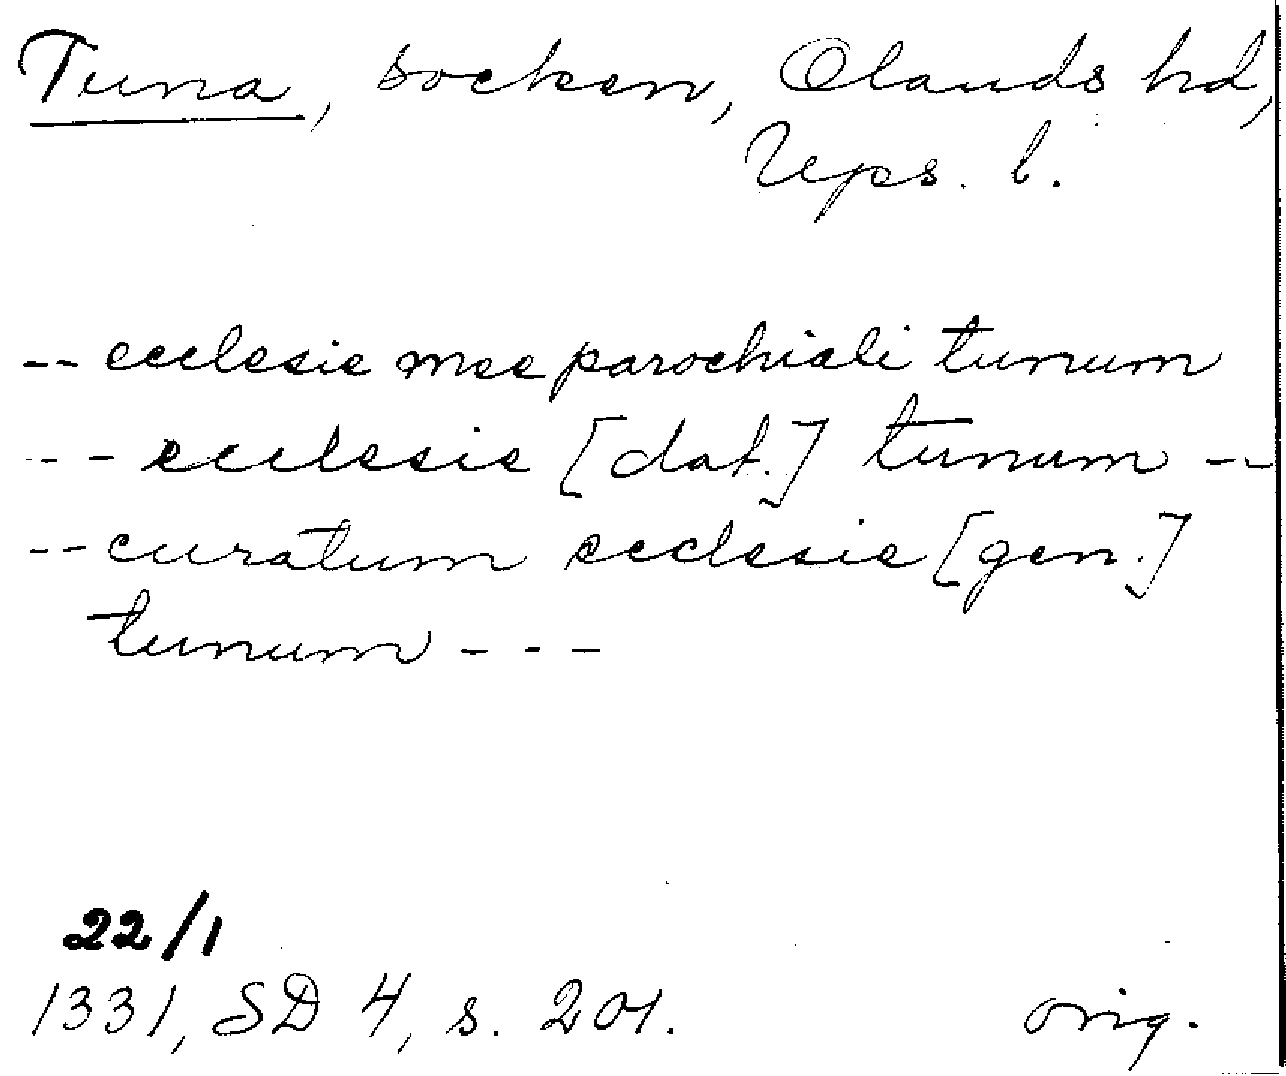 Tuna, socken, Olands hd,
Ups. l.
-- ecclesie mee parochiali tunum
--- ecclesie [dat.] tunum --
-- curatum ecclesie [gen.]
tunum ---
22/1
1331, SD 4, s. 201.
orig.